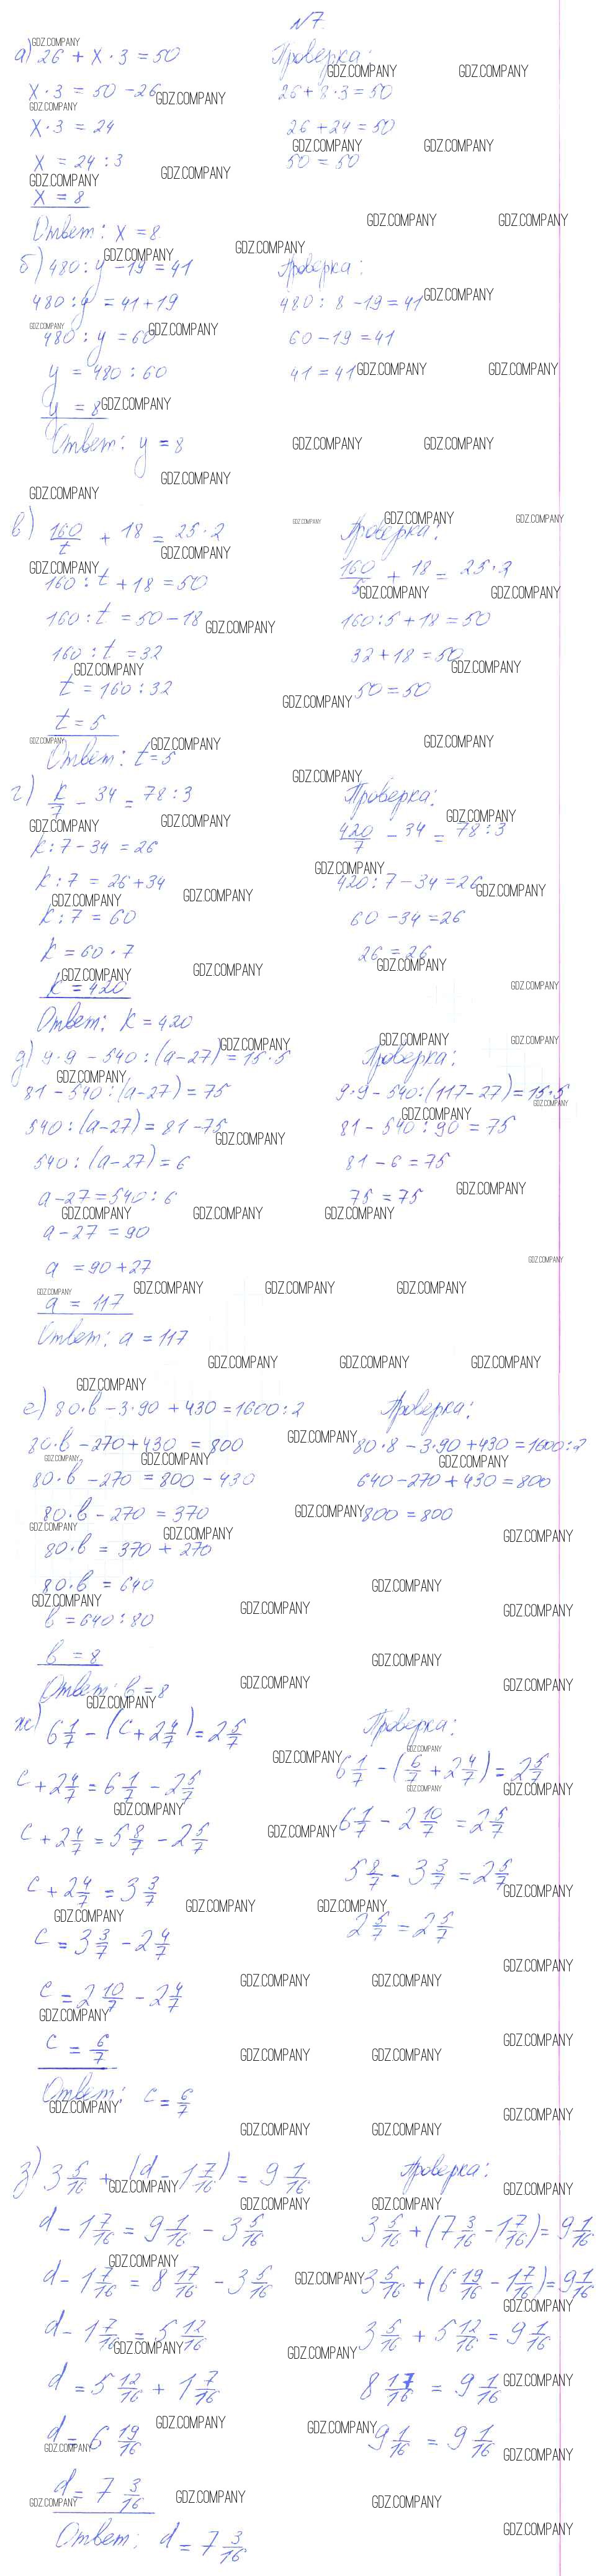 №7.
а) 26 + x · 3 = 50
x · 3 = 50 - 26
x · 3 = 24
x = 24 : 3
x = 8
Ответ: x = 8
Проверка:
26 + 8 · 3 = 50
26 + 24 = 50
50 = 50
б) 480 : y - 19 = 41
480 : y = 41 + 19
480 : y = 60
y = 480 : 60
y = 8
Ответ: y = 8
Проверка:
480 : 8 - 19 = 41
60 - 19 = 41
41 = 41
в) 160/t + 18 = 25 · 2
160 : t + 18 = 50
160 : t = 50 - 18
160 : t = 32
t = 160 : 32
t = 5
Ответ: t = 5
Проверка:
160/5 + 18 = 25 · 2
160 : 5 + 18 = 50
32 + 18 = 50
50 = 50
г) k/7 - 34 = 78 : 3
k : 7 - 34 = 26
k : 7 = 26 + 34
k : 7 = 60
k = 60 · 7
k = 420
Ответ: k = 420
Проверка:
420/7 - 34 = 78 : 3
420 : 7 - 34 = 26
60 - 34 = 26
26 = 26
д) 9 · 9 - 540 : (a - 27) = 15 · 5
81 - 540 : (a - 27) = 75
540 : (a - 27) = 81 - 75
540 : (a - 27) = 6
a - 27 = 540 : 6
a - 27 = 90
a = 90 + 27
a = 117
Ответ: a = 117
Проверка:
9 · 9 - 540 : (117 - 27) = 15 · 5
81 - 540 : 90 = 75
81 - 6 = 75
75 = 75
е) 80 · b - 3 · 90 + 430 = 1600 : 2
80 · b - 270 + 430 = 800
80 · b - 270 = 800 - 430
80 · b - 270 = 370
80 · b = 370 + 270
80 · b = 640
b = 640 : 80
b = 8
Ответ: b = 8
Проверка:
80 · 8 - 3 · 90 + 430 = 1600 : 2
640 - 270 + 430 = 800
800 = 800
ж) 6 1/7 - (c + 2 4/7) = 2 5/7
c + 2 4/7 = 6 1/7 - 2 5/7
c + 2 4/7 = 5 8/7 - 2 5/7
c + 2 4/7 = 3 3/7
c = 3 3/7 - 2 4/7
c = 2 10/7 - 2 4/7
c = 6/7
Ответ: c = 6/7
Проверка:
6 1/7 - (6/7 + 2 4/7) = 2 5/7
6 1/7 - 2 10/7 = 2 5/7
5 8/7 - 3 3/7 = 2 5/7
2 5/7 = 2 5/7
з) 3 5/16 + (d - 1 7/16) = 9 1/16
d - 1 7/16 = 9 1/16 - 3 5/16
d - 1 7/16 = 8 17/16 - 3 5/16
d - 1 7/16 = 5 12/16
d = 5 12/16 + 1 7/16
d = 6 19/16
d = 7 3/16
Ответ: d = 7 3/16
Проверка:
3 5/16 + (7 3/16 - 1 7/16) = 9 1/16
3 5/16 + (6 19/16 - 1 7/16) = 9 1/16
3 5/16 + 5 12/16 = 9 1/16
8 17/16 = 9 1/16
9 1/16 = 9 1/16
GDZ.COMPANY